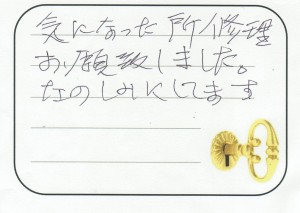 気になった所修理
お願致しました。
たのしみにしてます